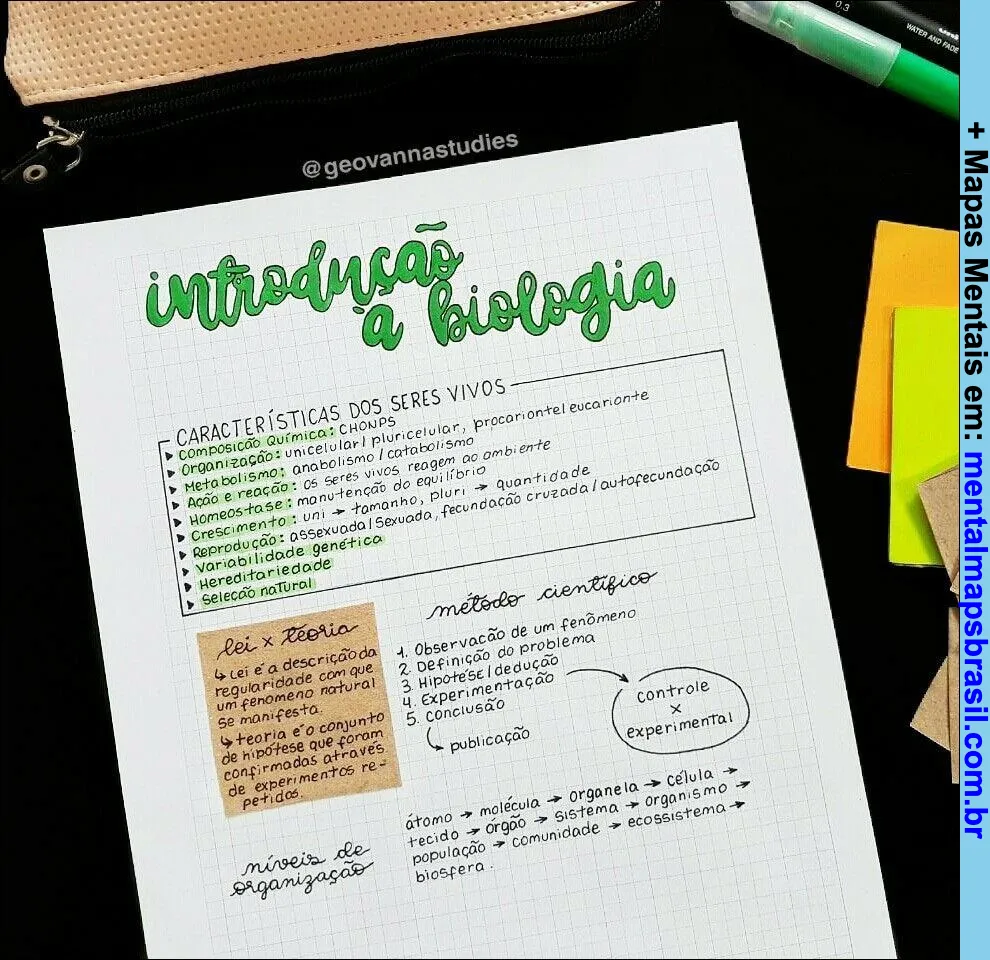 0.3
uni
WATER AND FADE
@geovannastudies
introdução
à biologia
CARACTERÍSTICAS DOS SERES VIVOS
▸ Composição Química: CHONPS
▸ Organização: unicelular/pluricelular, procarionte/eucarionte
▸ Metabolismo: anabolismo/catabolismo
▸ Ação e reação: os seres vivos reagem ao ambiente
▸ Homeostase: manutenção do equilíbrio
▸ Crescimento: uni → tamanho, pluri → quantidade
▸ Reprodução: assexuada/sexuada, fecundação cruzada/autofecundação
▸ Variabilidade genética
▸ Hereditariedade
▸ Seleção natural
lei x teoria
↳ Lei é a descrição da
regularidade com que
um fenômeno natural
se manifesta.
↳ teoria é o conjunto
de hipótese que foram
confirmadas através
de experimentos re-
petidos.
método científico
1. Observação de um fenômeno
2. Definição do problema
3. Hipótese/dedução
4. Experimentação →
5. Conclusão
↳ publicação
controle
x
experimental
níveis de
organização
átomo → molécula → organela → célula →
tecido → órgão → sistema → organismo →
população → comunidade → ecossistema →
biosfera.
+ Mapas Mentais em: mentalmapsbrasil.com.br